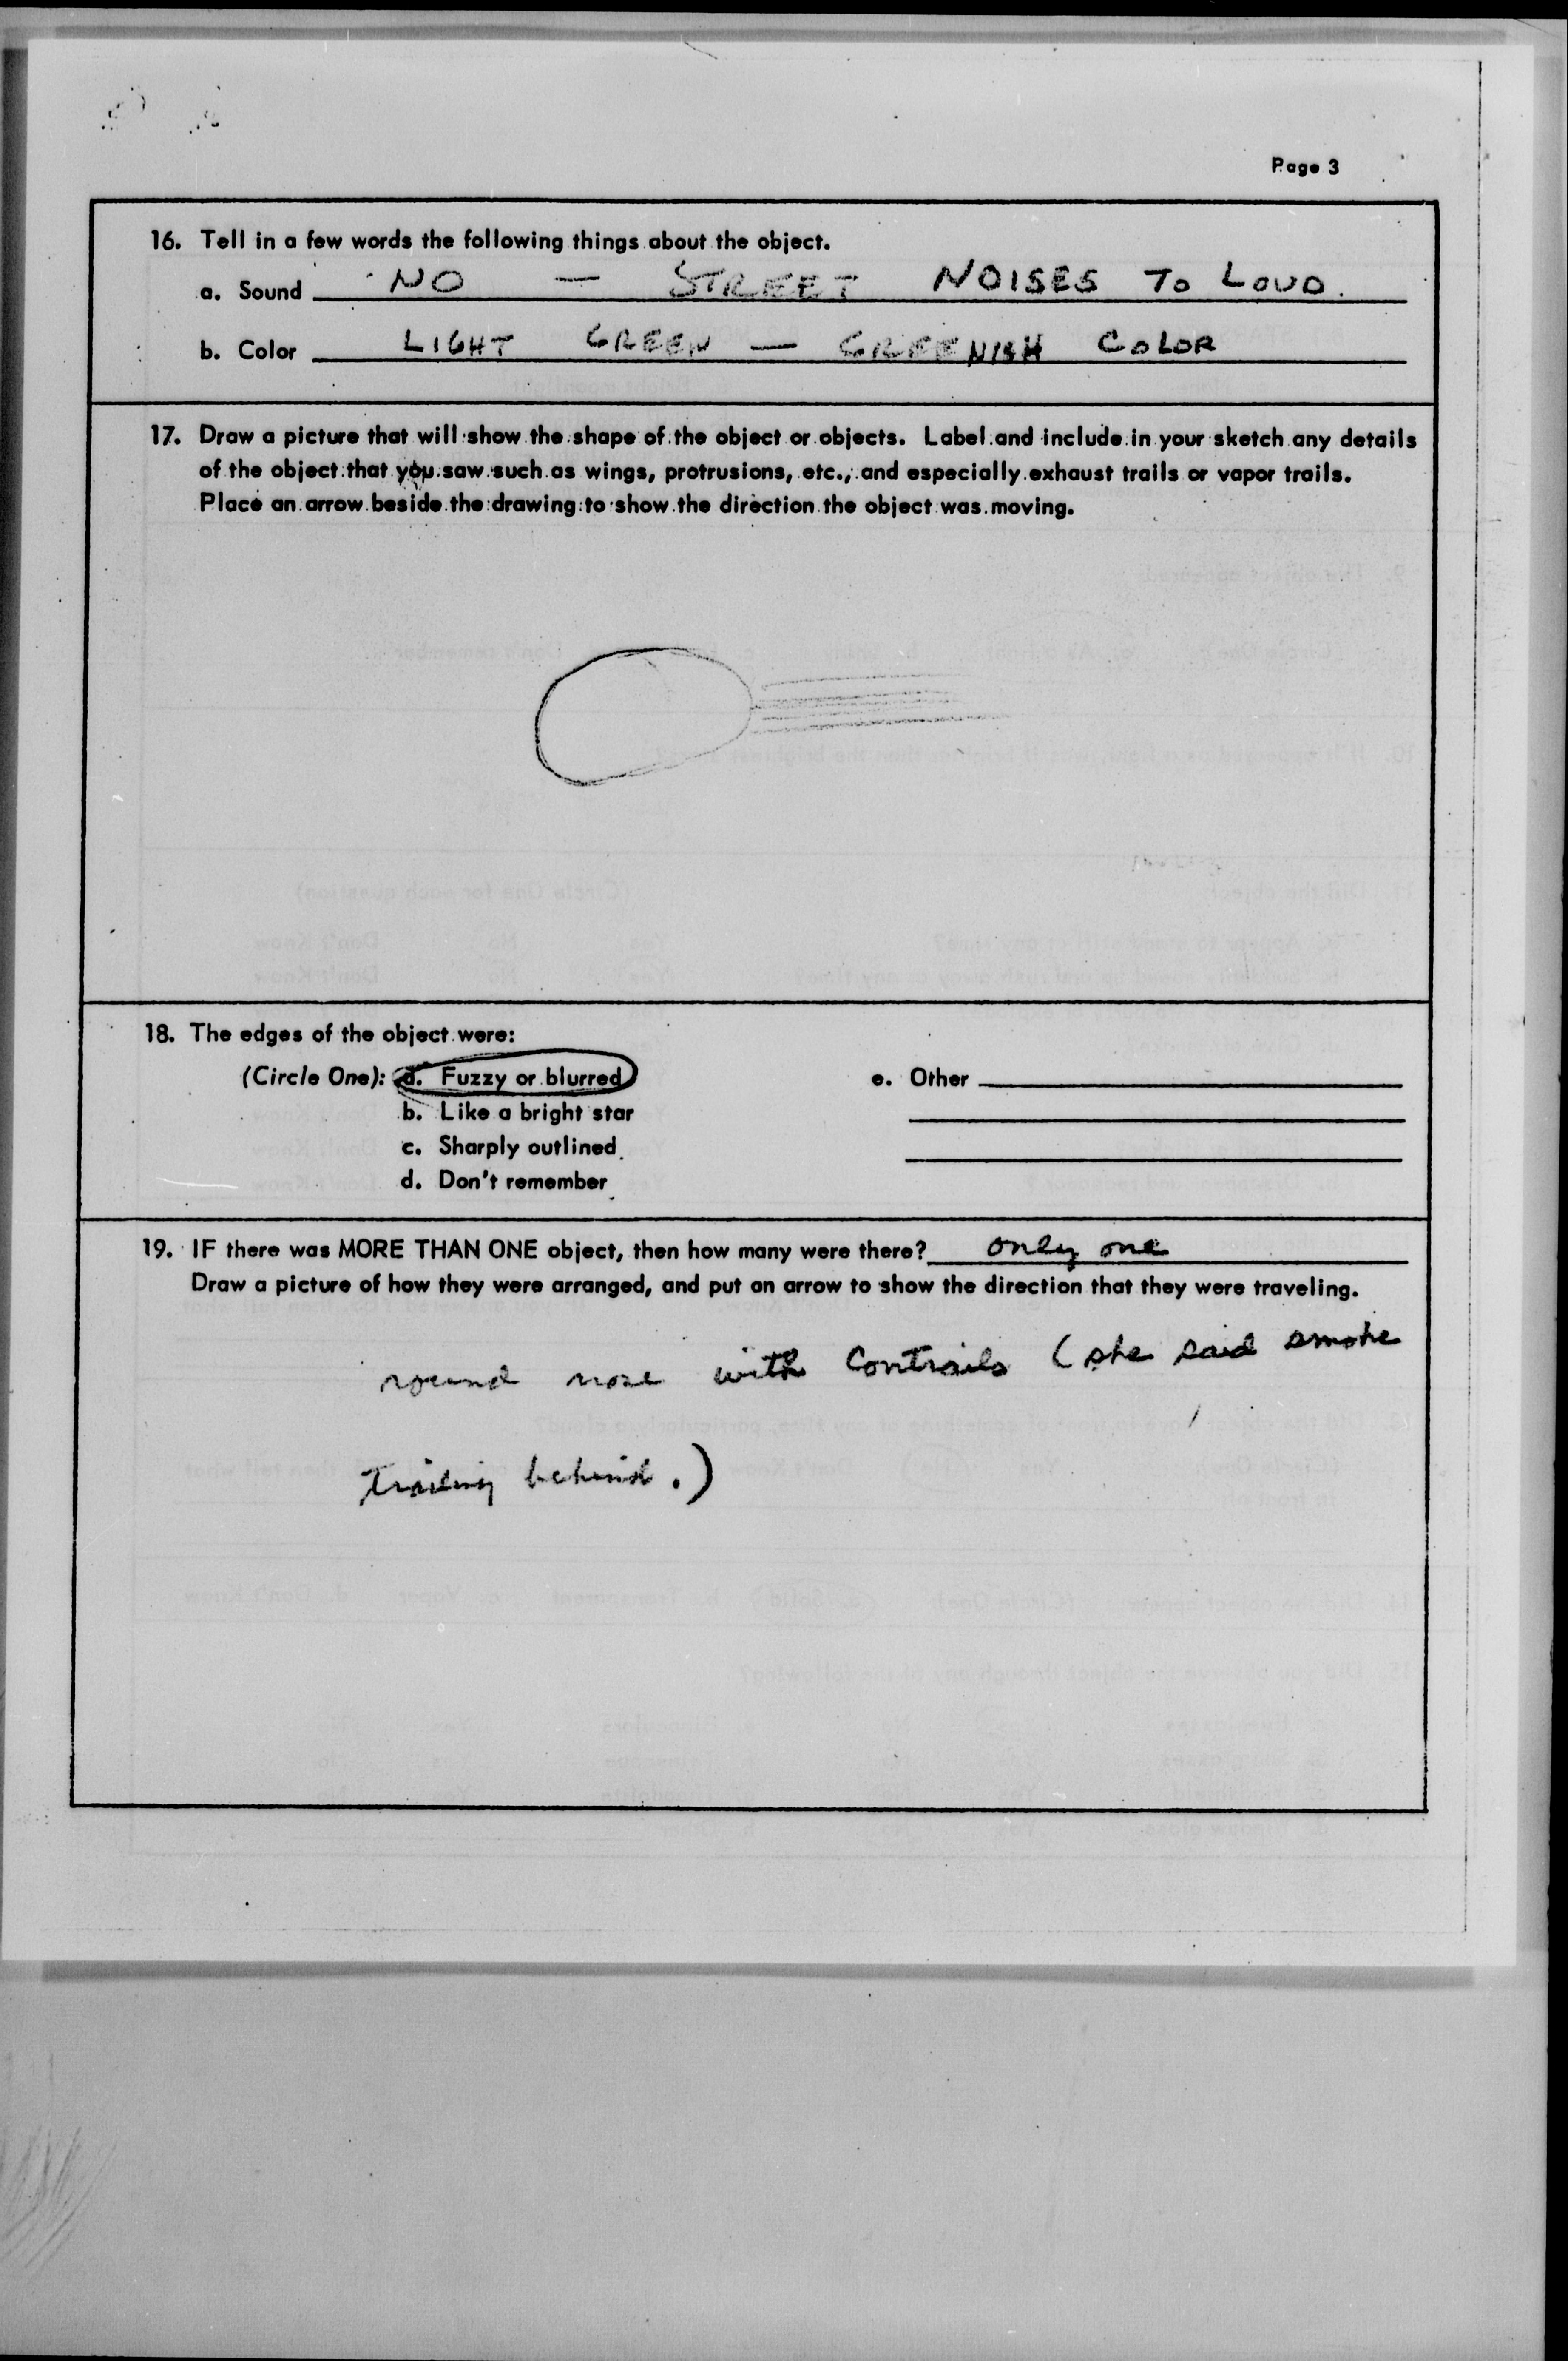 Page 3
16. Tell in a few words the following things about the object.
a. Sound NO — STREET NOISES TO LOUD.
b. Color LIGHT GREEN — GREENISH COLOR
17. Draw a picture that will show the shape of the object or objects. Label and include in your sketch any details
of the object that you saw such as wings, protrusions, etc., and especially exhaust trails or vapor trails.
Place an arrow beside the drawing to show the direction the object was moving.
18. The edges of the object were:
(Circle One): a. Fuzzy or blurred
b. Like a bright star
c. Sharply outlined
d. Don't remember
e. Other
19. IF there was MORE THAN ONE object, then how many were there? only one
Draw a picture of how they were arranged, and put an arrow to show the direction that they were traveling.
round nose with Contrails (she said smoke
trailing behind.)